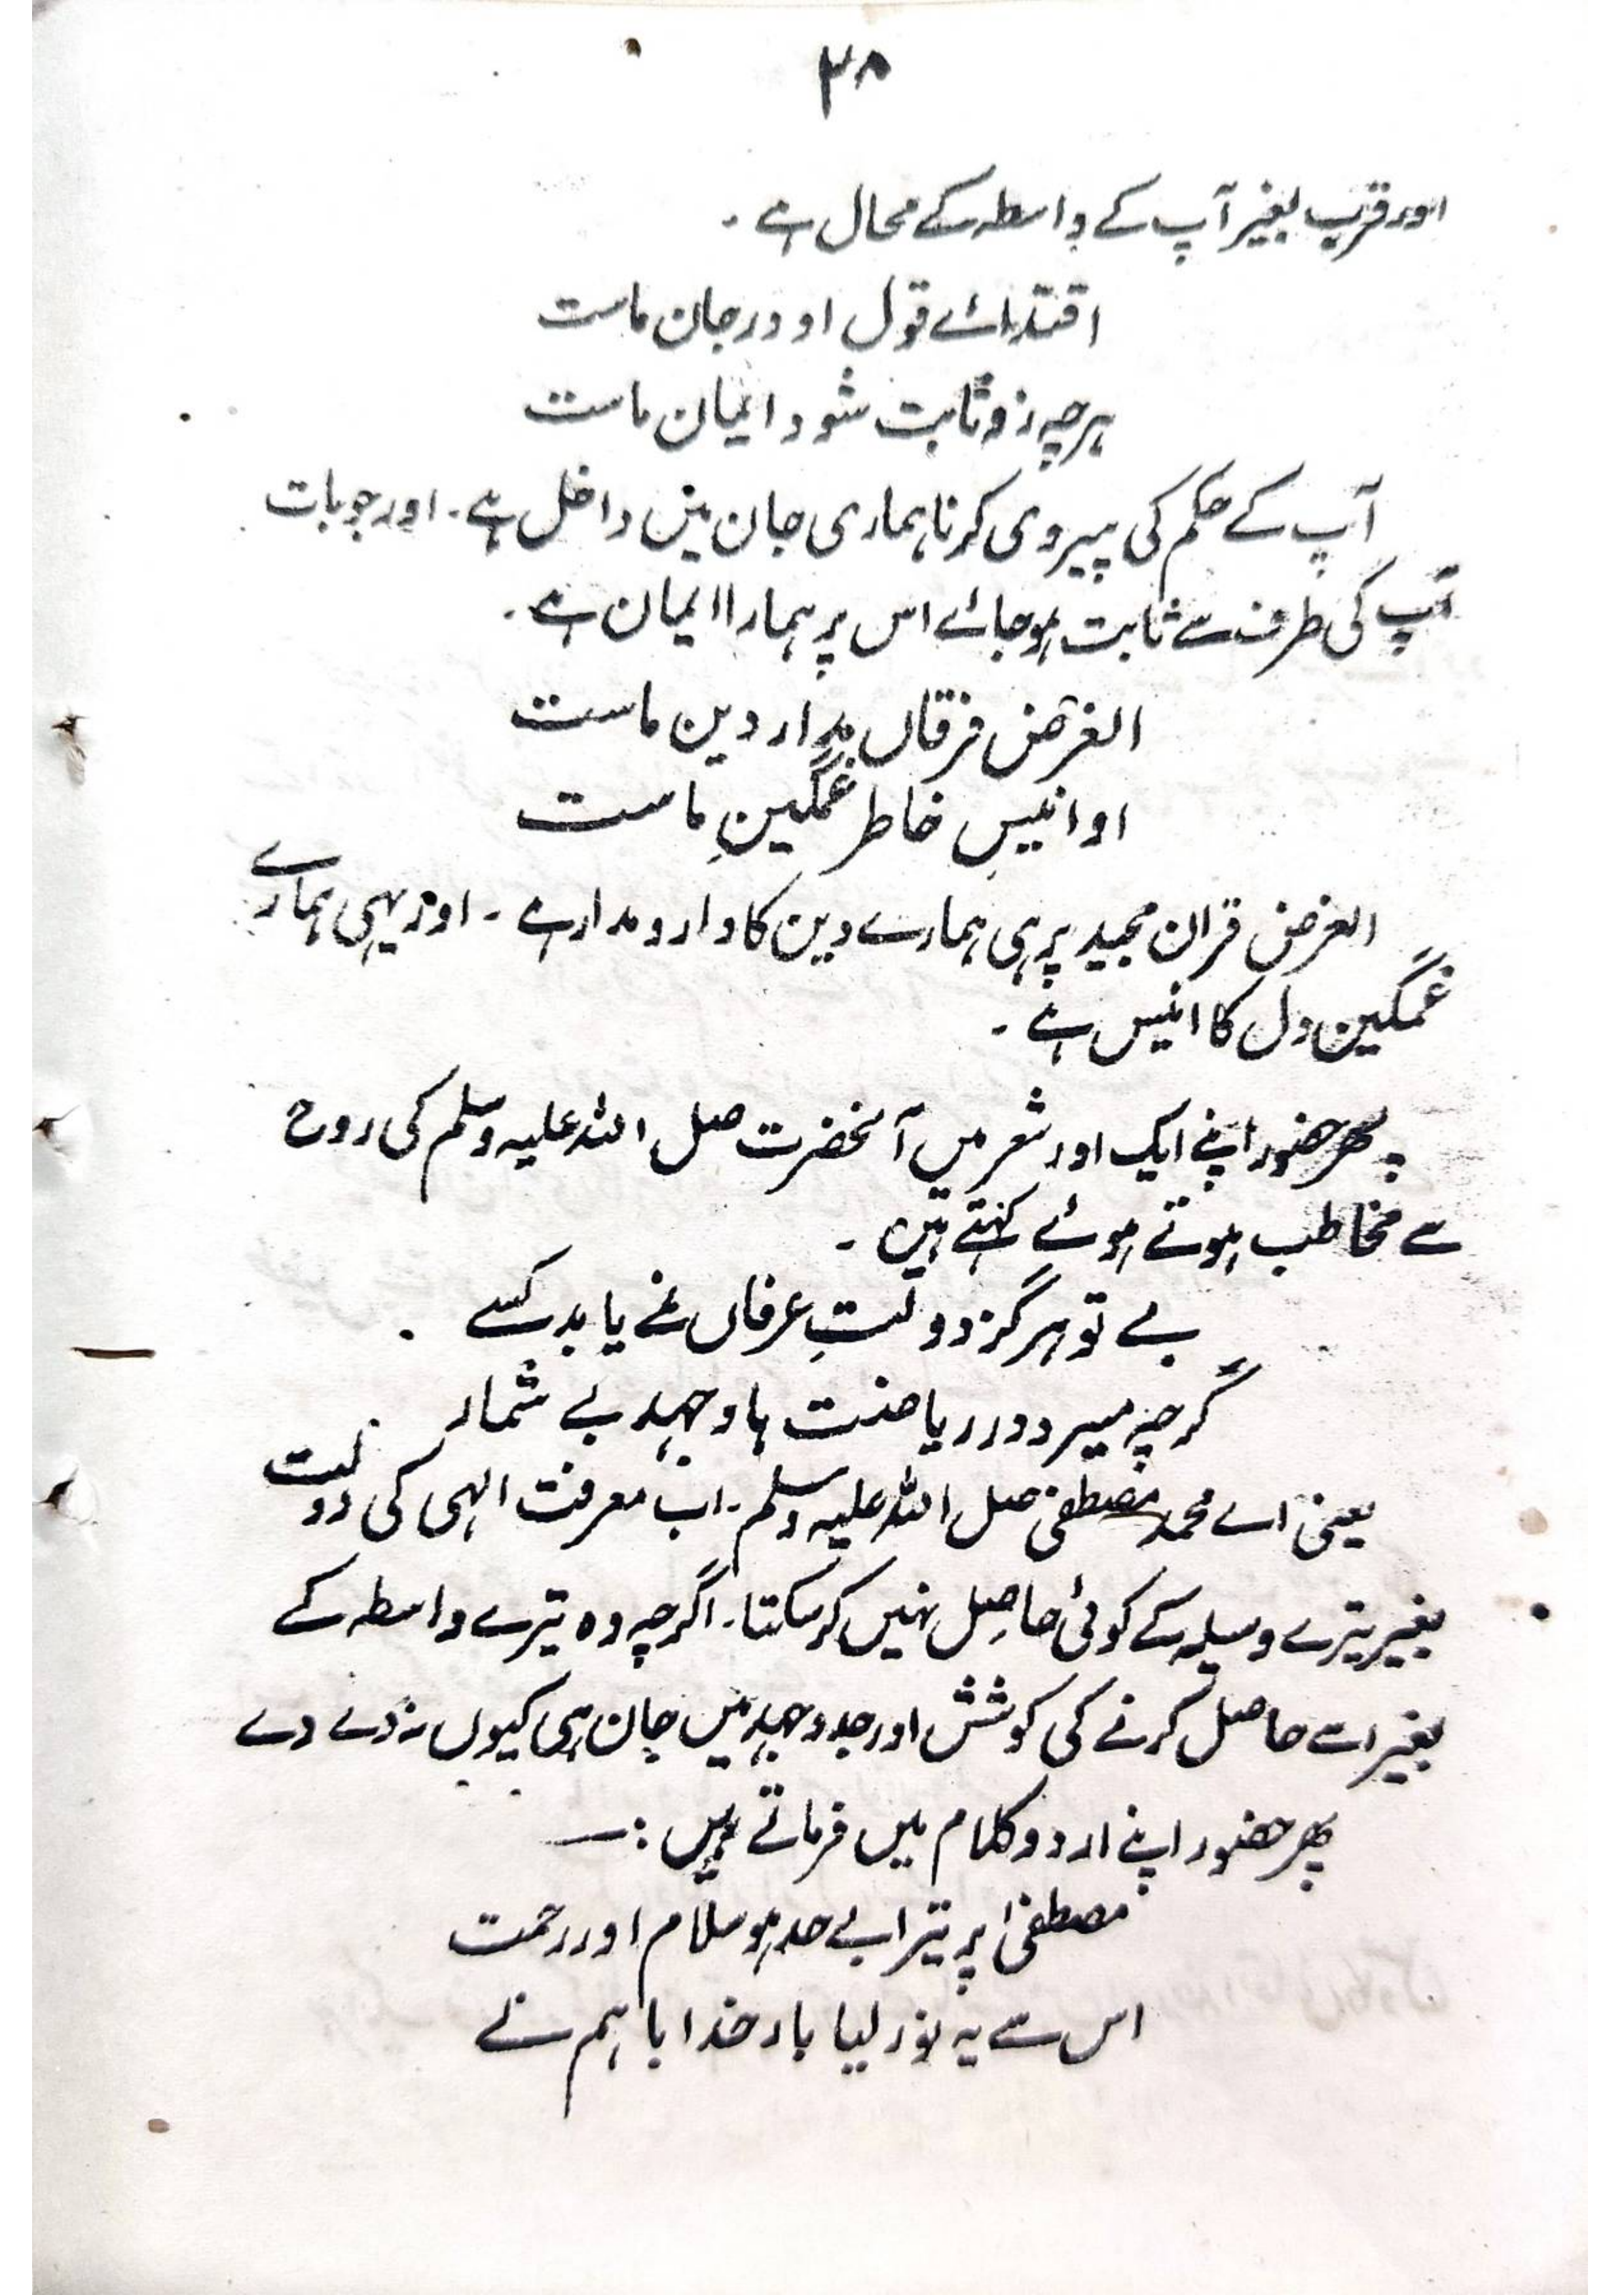 ۳۸
اور قرب بغیر آپ کے واسطہ کے محال ہے ۔
اقتدائے قول او در جان ماست
ہرچہ زو ثابت شود ایمان ماست
آپ کے حکم کی پیروی کرنا ہماری جان میں داخل ہے ۔ اور جو بات
آپ کی طرف سے ثابت ہو جائے اس پر ہمارا ایمان ہے ۔
الغرض فرقاں مدار دین ماست
او انیسِ خاطر غمگینِ ماست
الغرض قران مجید پر ہی ہمارے دین کا دارومدار ہے ۔ اور یہی ہمارے
غمگین دل کا انیس ہے ۔
پھر حضور اپنے ایک اور شعر میں آنحضرت صل اللہ علیہ وسلم کی روح
سے مخاطب ہوتے ہوئے کہتے ہیں ۔
بے تو ہرگز دولتِ عرفاں نمے یابد کسے
گرچہ میرد در ریاضت ہا و جہد بے شمار
یعنی اے محمد مصطفیٰ صل اللہ علیہ وسلم ۔ اب معرفت الہی کی دولت
بغیر تیرے وسیلہ کے کوئی حاصِل نہیں کر سکتا ۔ اگرچہ وہ تیرے واسطہ کے
بغیر اسے حاصل کرنے کی کوشش اور جدوجہد میں جان ہی کیوں نہ دے دے
پھر حضور اپنے اردو کلام میں فرماتے ہیں :—
مصطفیٰ پر تیرا بے حد ہو سلام اور رحمت
اس سے یہ نور لیا بار خدایا ہم نے